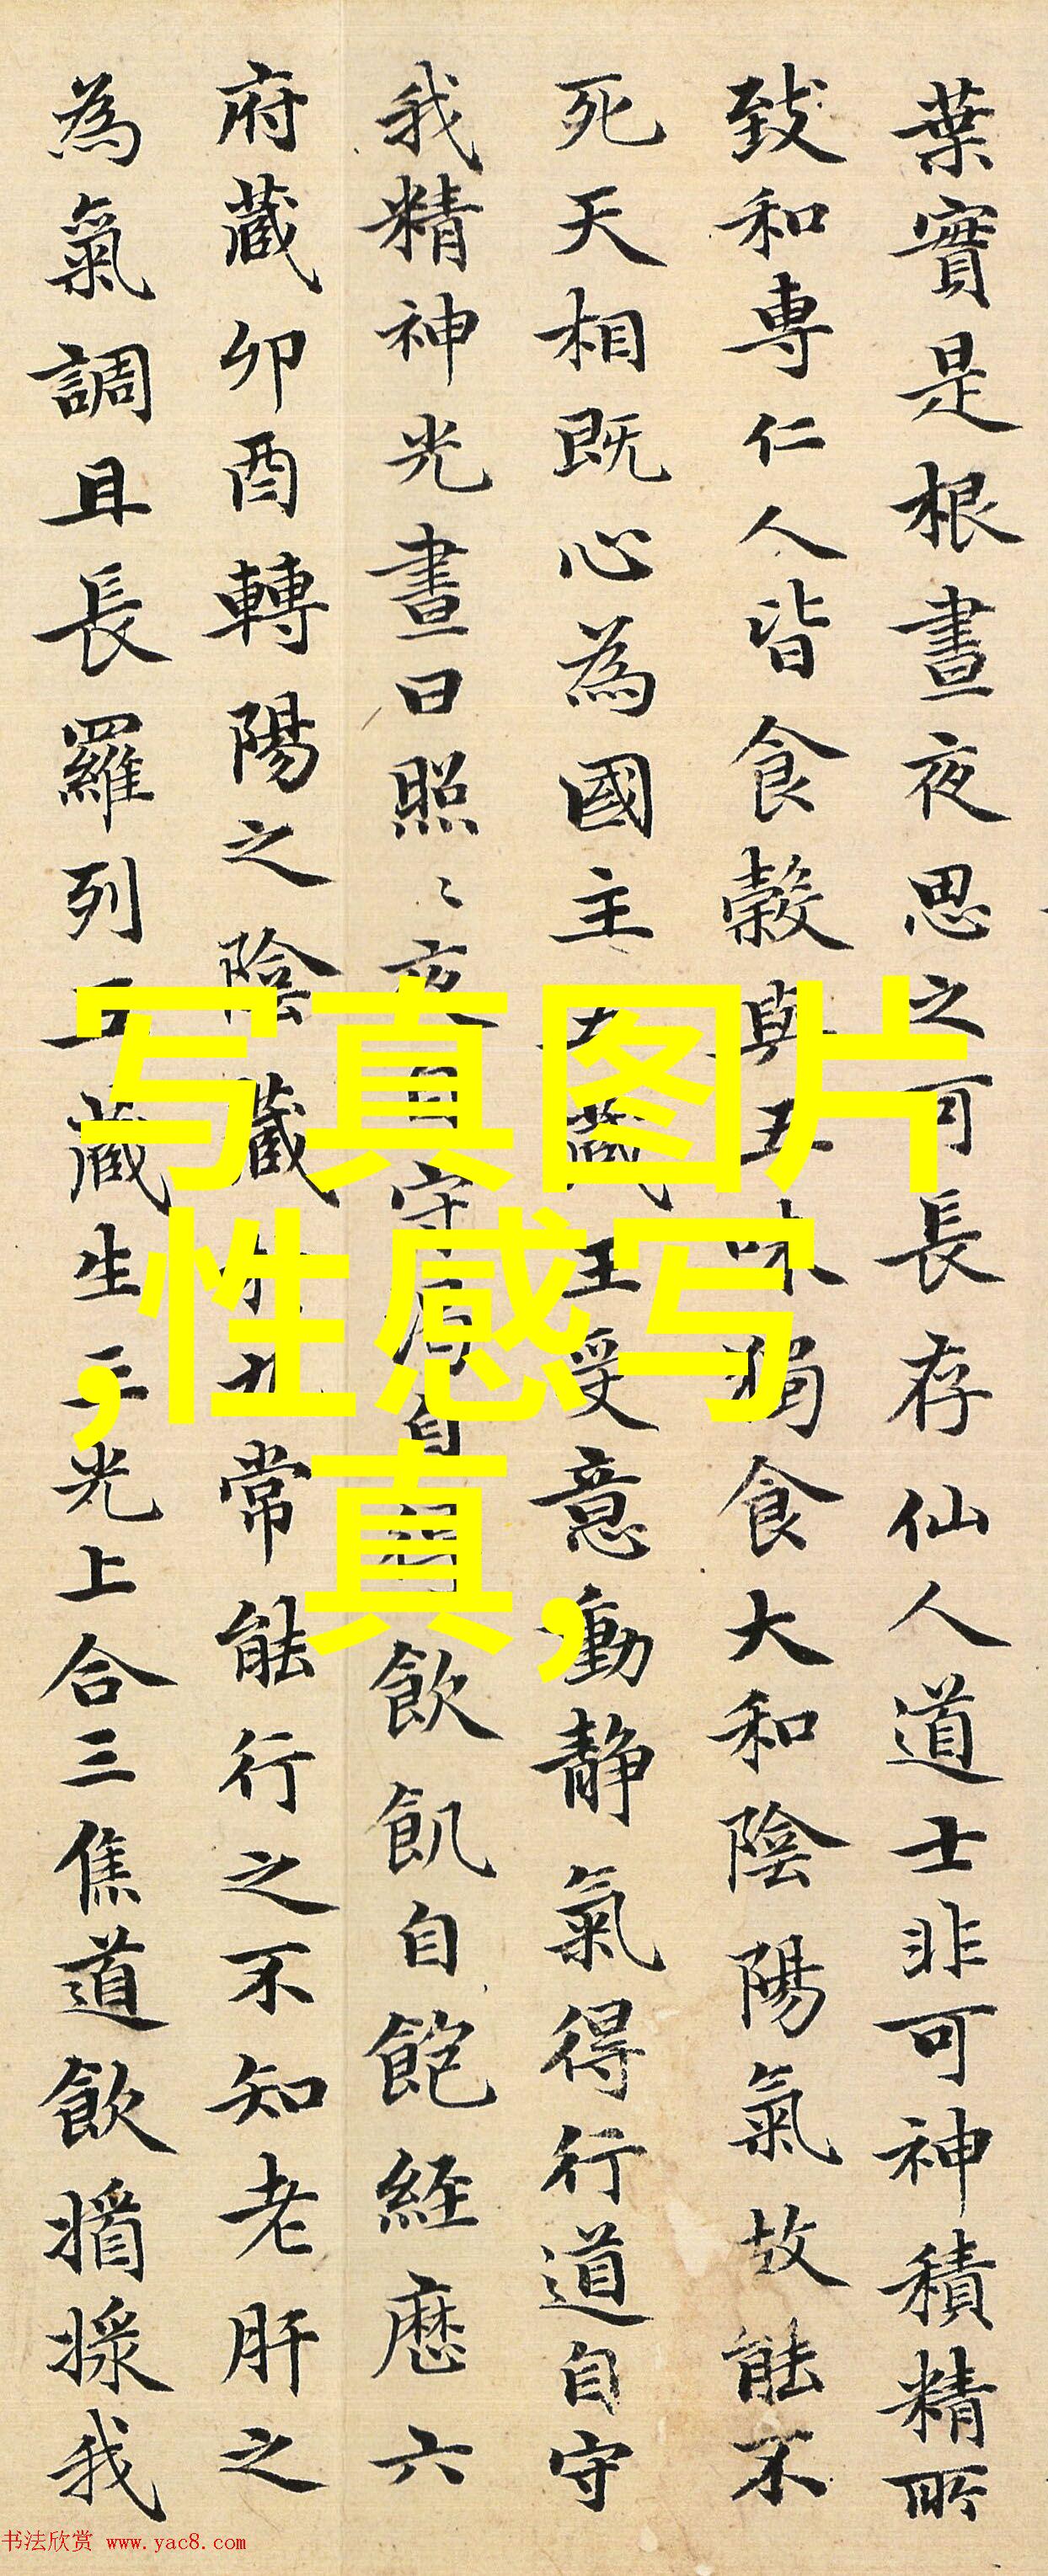 葉實是根晝夜思之可長存仙人道士非可神積精所
致和専仁人皆食穀與五味獨食大和陰陽氣故能不
死天相既心為國主五藏王受意動静氣得行道自守
我精神光晝日照〻夜自守渴自飲飢自飽経歴六
府蔵卯酉轉陽之陰蔵九常能行之不知老肝之
為氣調且長羅列五蔵生三光上合三焦道飲漿我
写真图片
,性感写
真,
书法欣赏 www.yac8.com